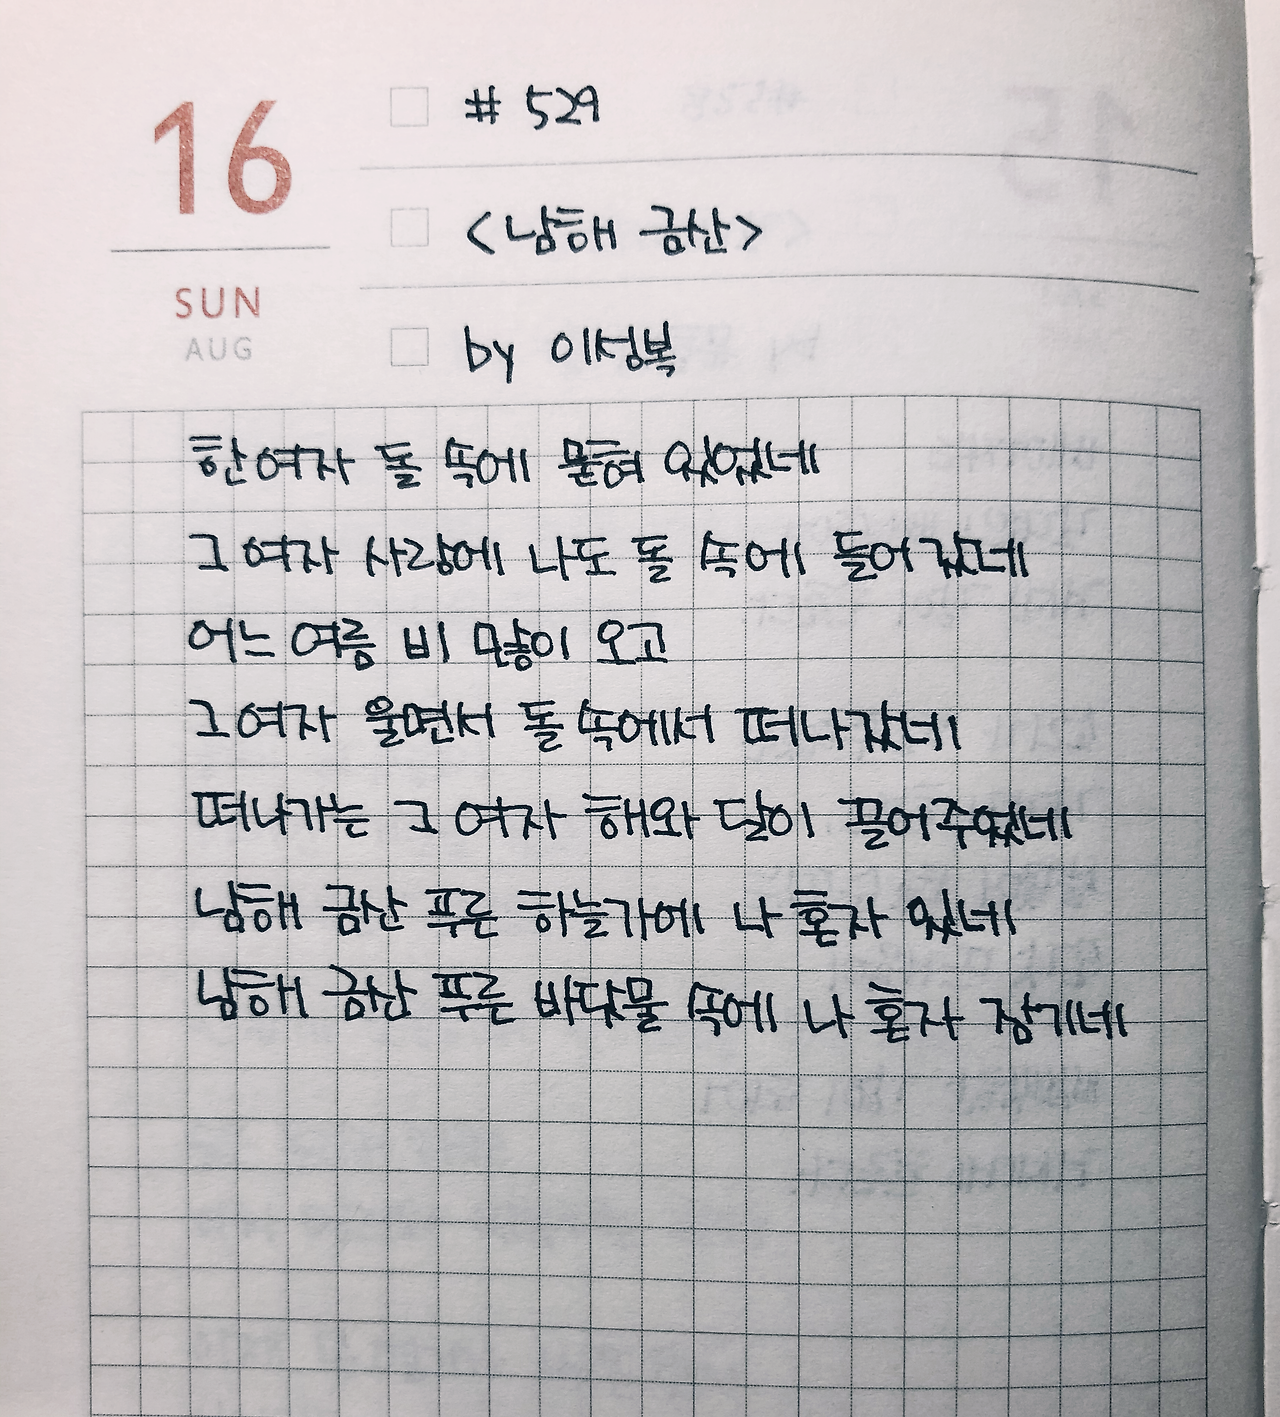 16
SUN
AUG
# 529
<남해 금산>
by 이성복
한 여자 돌 속에 묻혀 있었네
그 여자 사랑에 나도 돌 속에 들어갔네
어느 여름 비 많이 오고
그 여자 울면서 돌 속에서 떠나갔네
떠나가는 그 여자 해와 달이 끌어주었네
남해 금산 푸른 하늘가에 나 혼자 있네
남해 금산 푸른 바닷물 속에 나 혼자 잠기네